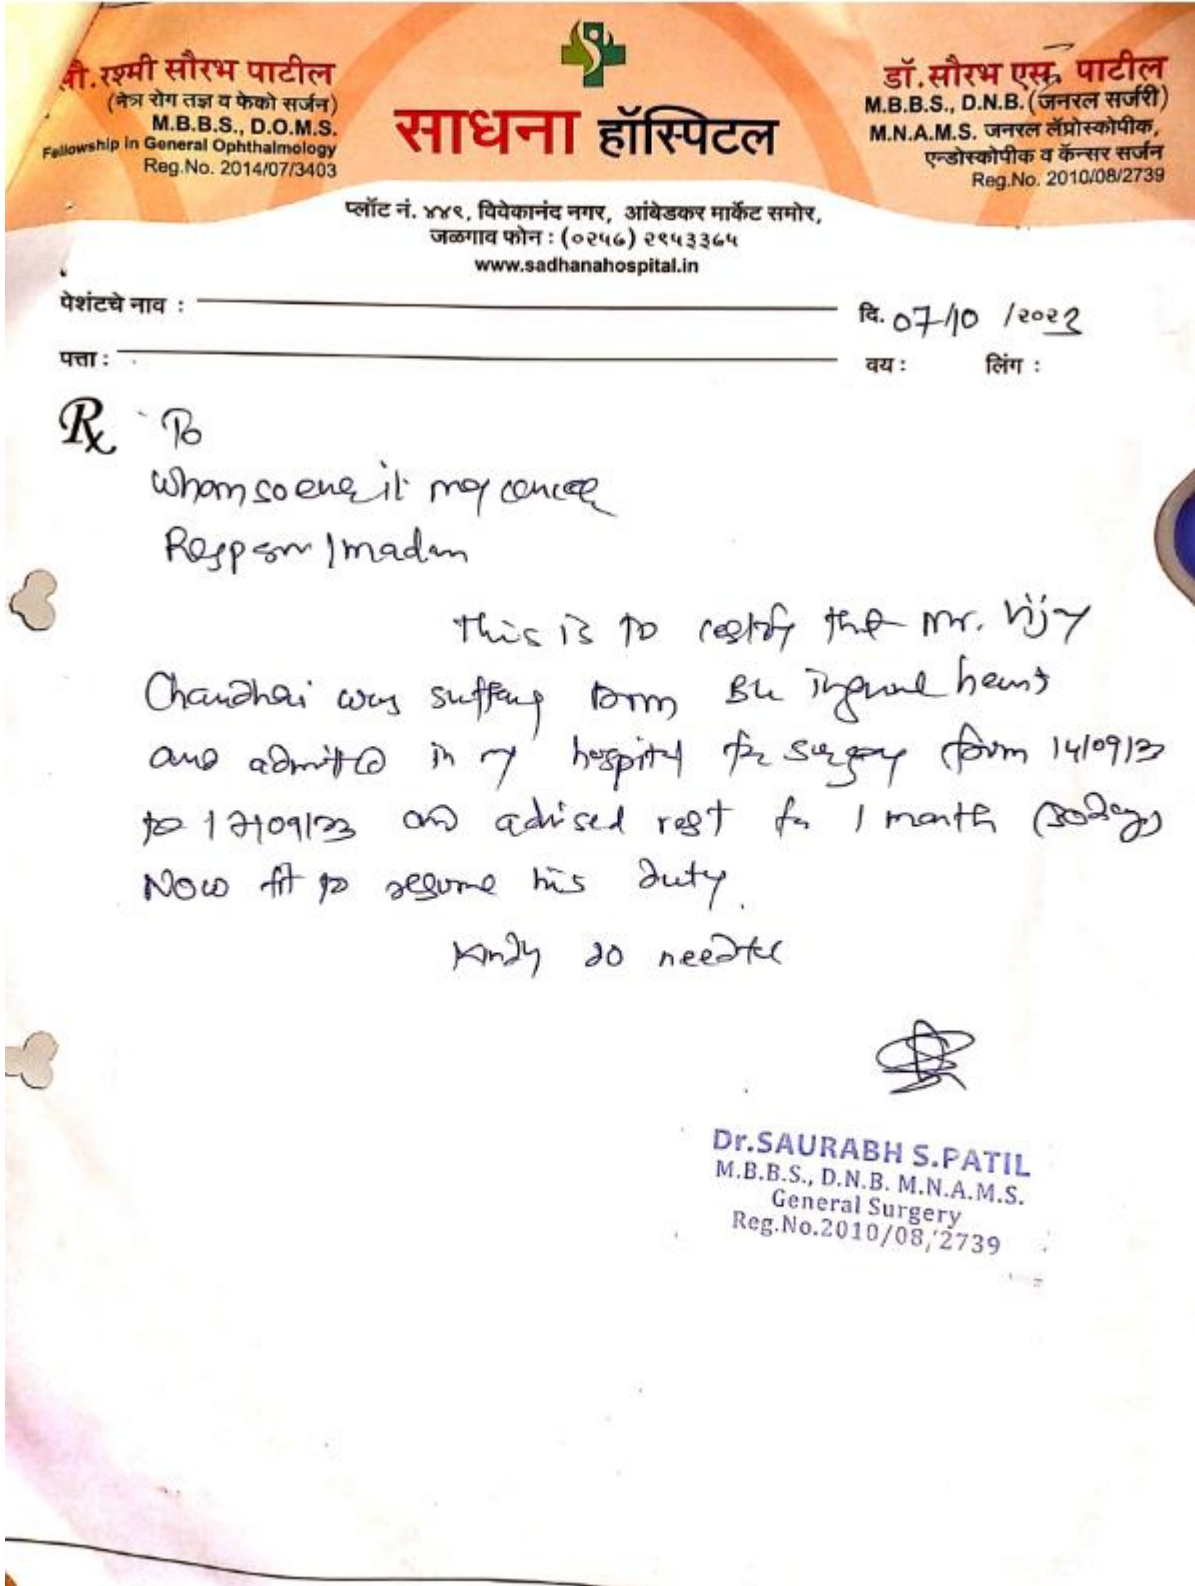 सौ.रश्मी सौरभ पाटील
(नेत्र रोग तज्ञ व फेको सर्जन)
M.B.B.S., D.O.M.S.
Fellowship in General Ophthalmology
Reg.No. 2014/07/3403
साधना हॉस्पिटल
डॉ.सौरभ एस. पाटील
M.B.B.S., D.N.B. (जनरल सर्जरी)
M.N.A.M.S. जनरल लॅप्रोस्कोपीक,
एन्डोस्कोपीक व कॅन्सर सर्जन
Reg.No. 2010/08/2739
प्लॉट नं. ४४९, विवेकानंद नगर, आंबेडकर मार्केट समोर,
जळगाव फोन : (०२५७) २९५३३६५
www.sadhanahospital.in
पेशंटचे नाव :
दि. 07/10 /२०२३
पत्ता :
वय : लिंग :
Rx To
Whom so ever it may concer
Resp sir / madam
This is to certify that Mr. Vijay
Chaudhari was suffering from inguinal hernia
and admitted in my hospital for surgery from 14/09/23
to 17/09/23 and advised rest for 1 month (30 days)
Now fit to resume his duty.
Kindly do needful
Dr.SAURABH S.PATIL
M.B.B.S., D.N.B. M.N.A.M.S.
General Surgery
Reg.No.2010/08/2739